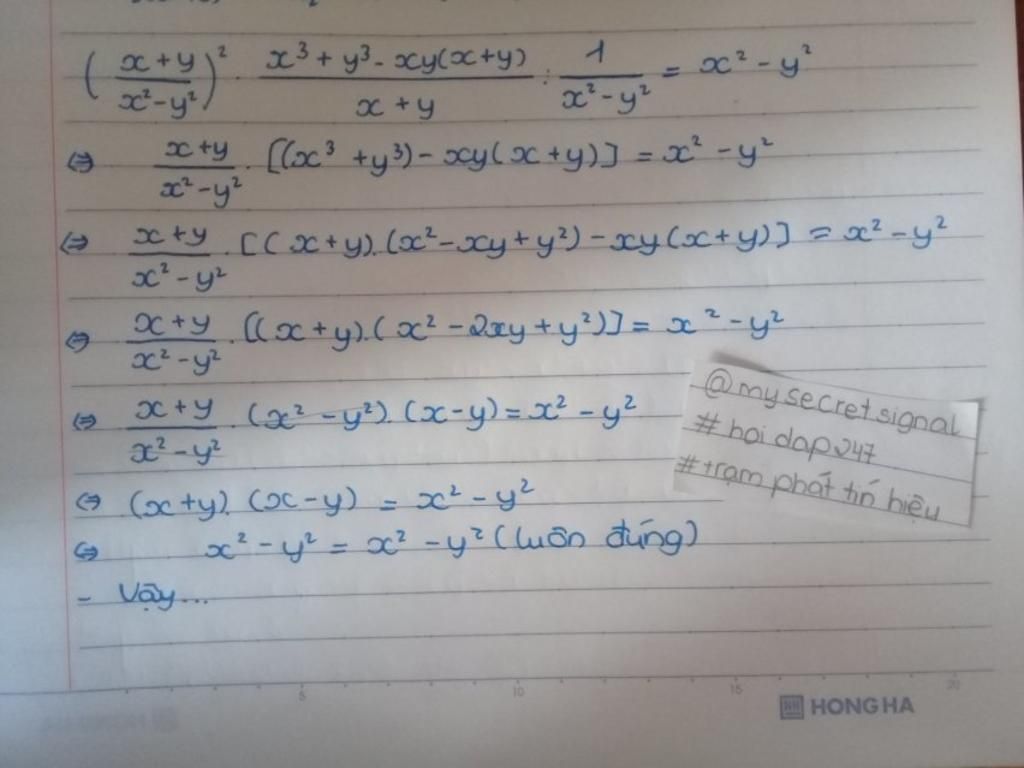 (x+y / x²-y²)² · x³+y³-xy(x+y) / x+y : 1 / x²-y² = x²-y²
⇔ x+y / x²-y² · [(x³+y³)-xy(x+y)] = x²-y²
⇔ x+y / x²-y² · [(x+y).(x²-xy+y²)-xy(x+y)] = x²-y²
⇔ x+y / x²-y² · [(x+y).(x²-2xy+y²)] = x²-y²
⇔ x+y / x²-y² · (x²-y²).(x-y) = x²-y²
⇔ (x+y).(x-y) = x²-y²
⇔ x²-y² = x²-y² (luôn đúng)
- Vậy...
@mysecretsignal
#hoidap247
#trạm phát tín hiệu
5 10 15 20
HH HONG HA